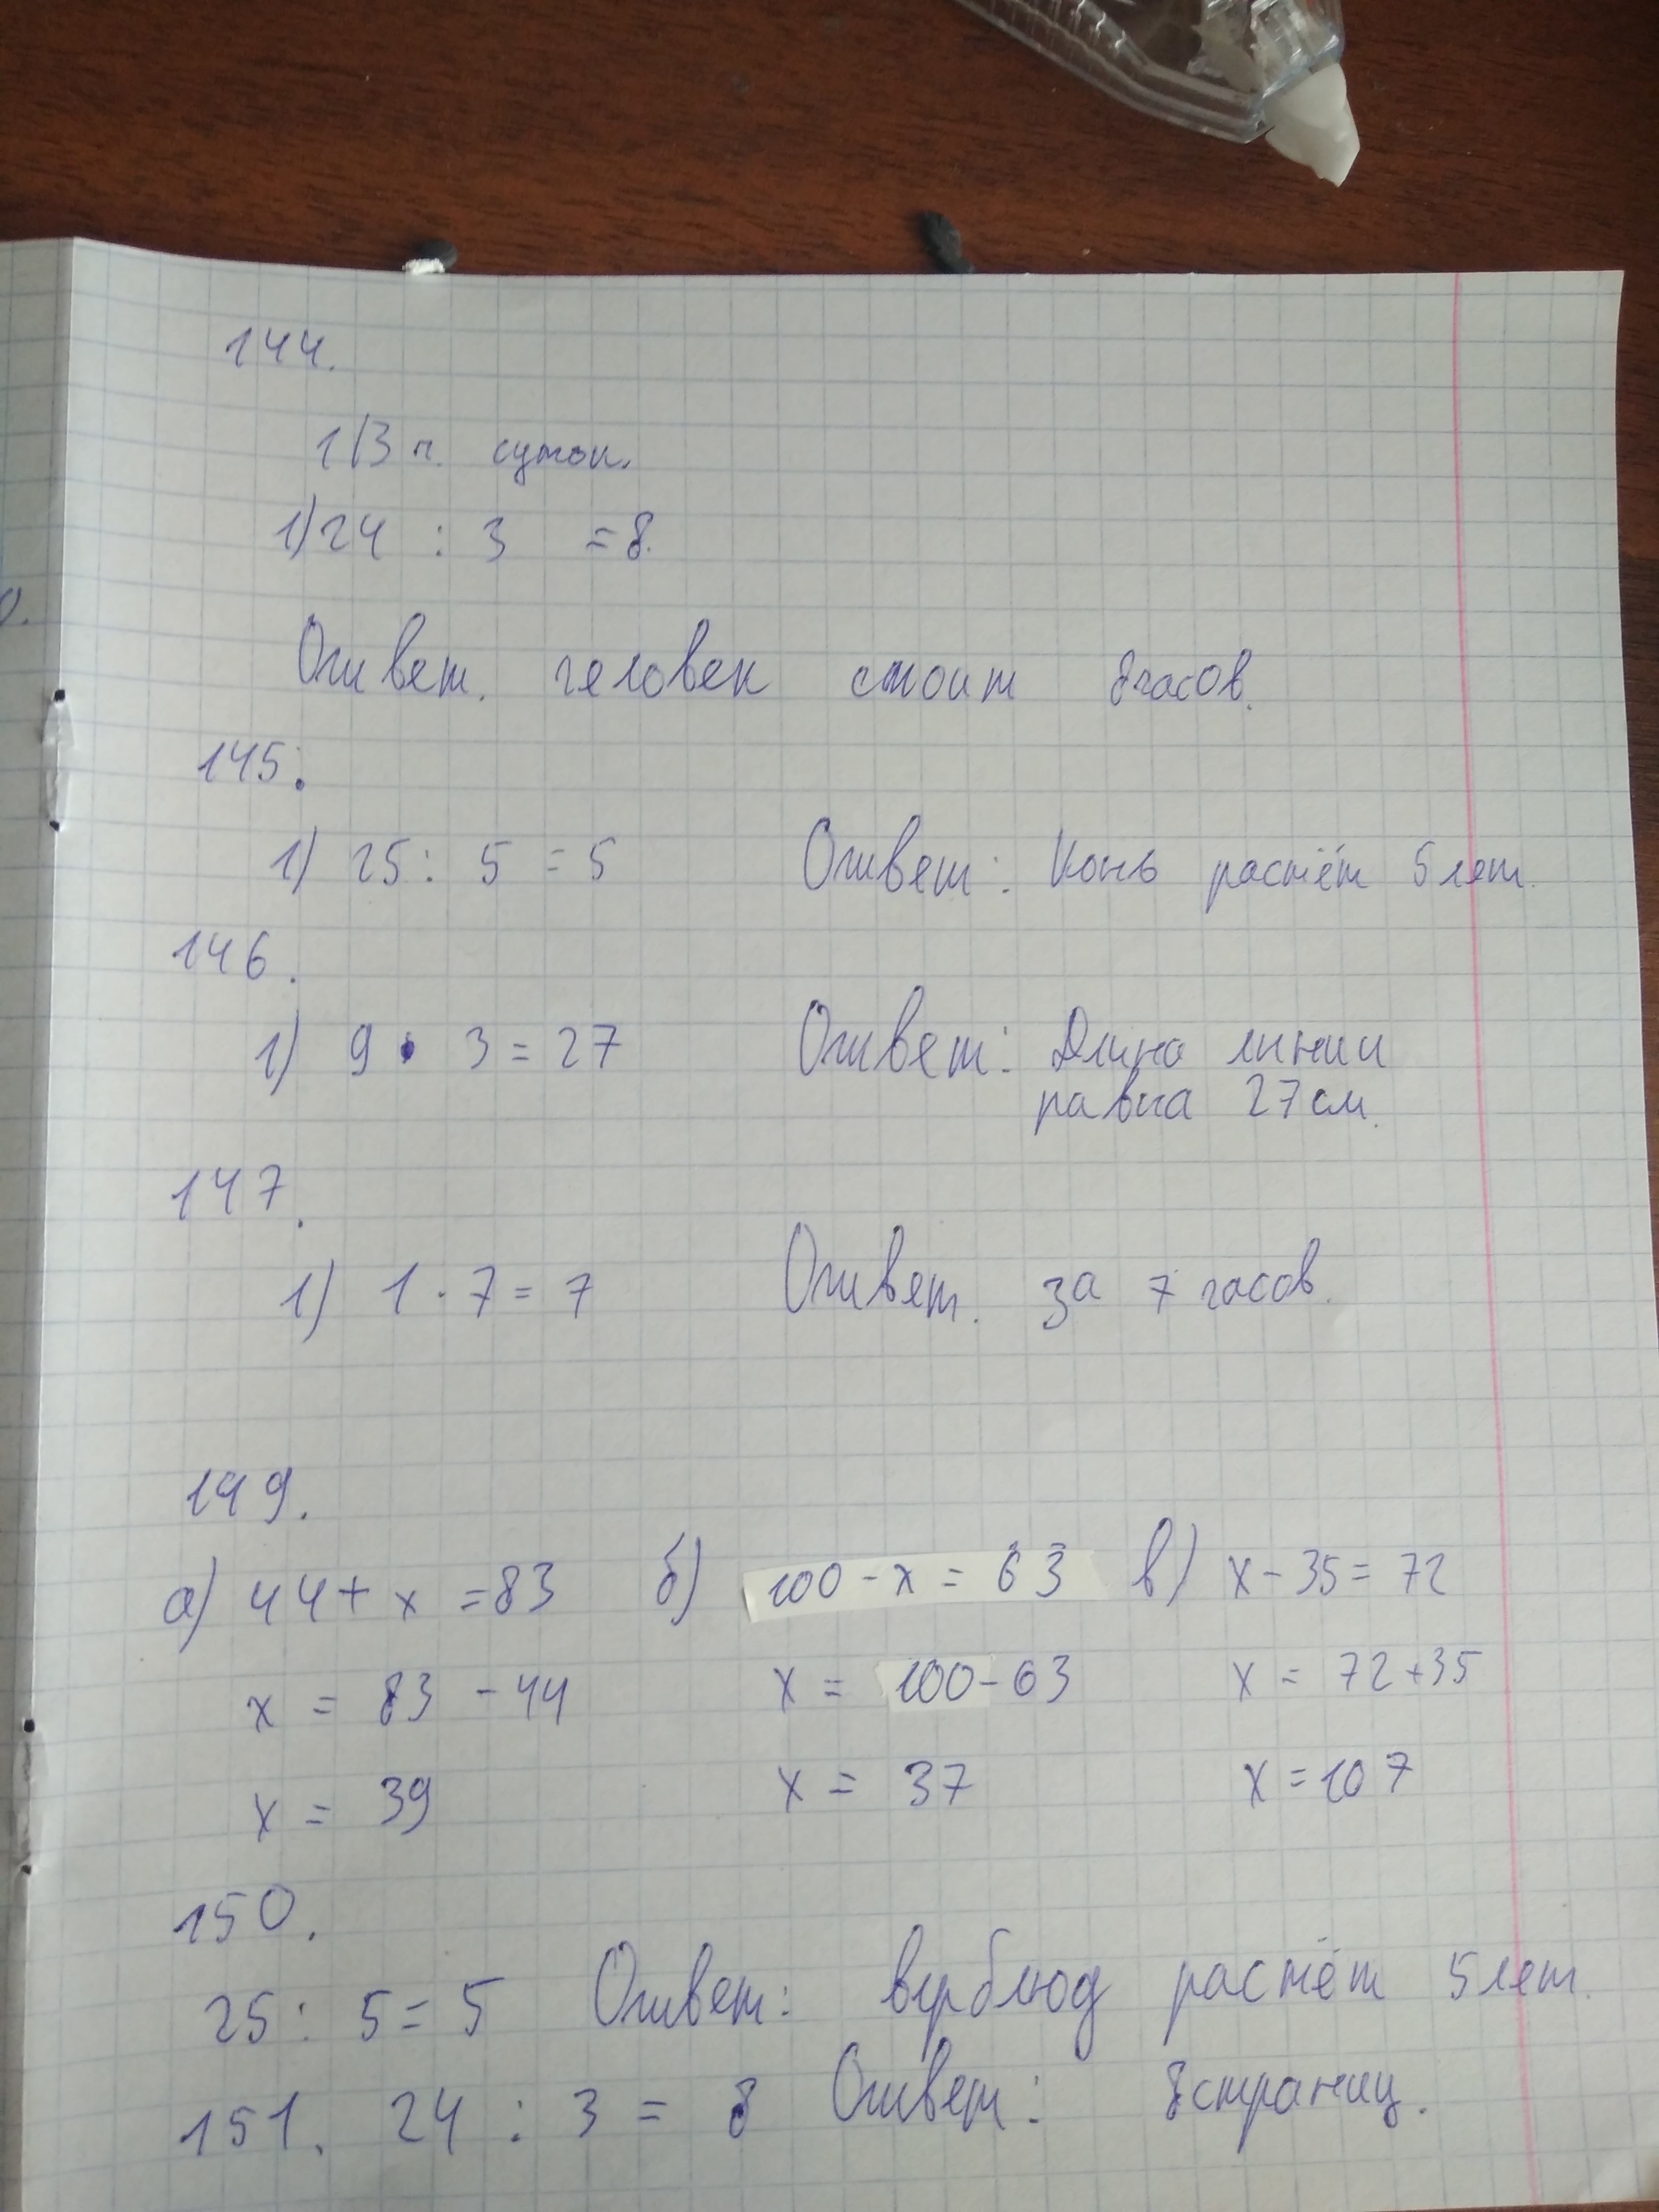 144.
1/3 ч. суток.
1) 24 : 3 = 8.
Ответ. человек стоит 8часов.
145.
1) 25 : 5 = 5 Ответ: Конь растёт 5 лет.
146.
1) 9 · 3 = 27 Ответ: Длина линии
равна 27 см.
147.
1) 1 · 7 = 7 Ответ. за 7 часов.
149.
а) 44 + х = 83 б) 100 - х = 63 в) х - 35 = 72
х = 83 - 44 х = 100 - 63 х = 72 + 35
х = 39 х = 37 х = 107
150.
25 : 5 = 5 Ответ: верблюд растёт 5 лет.
151. 24 : 3 = 8 Ответ: 8 страниц.